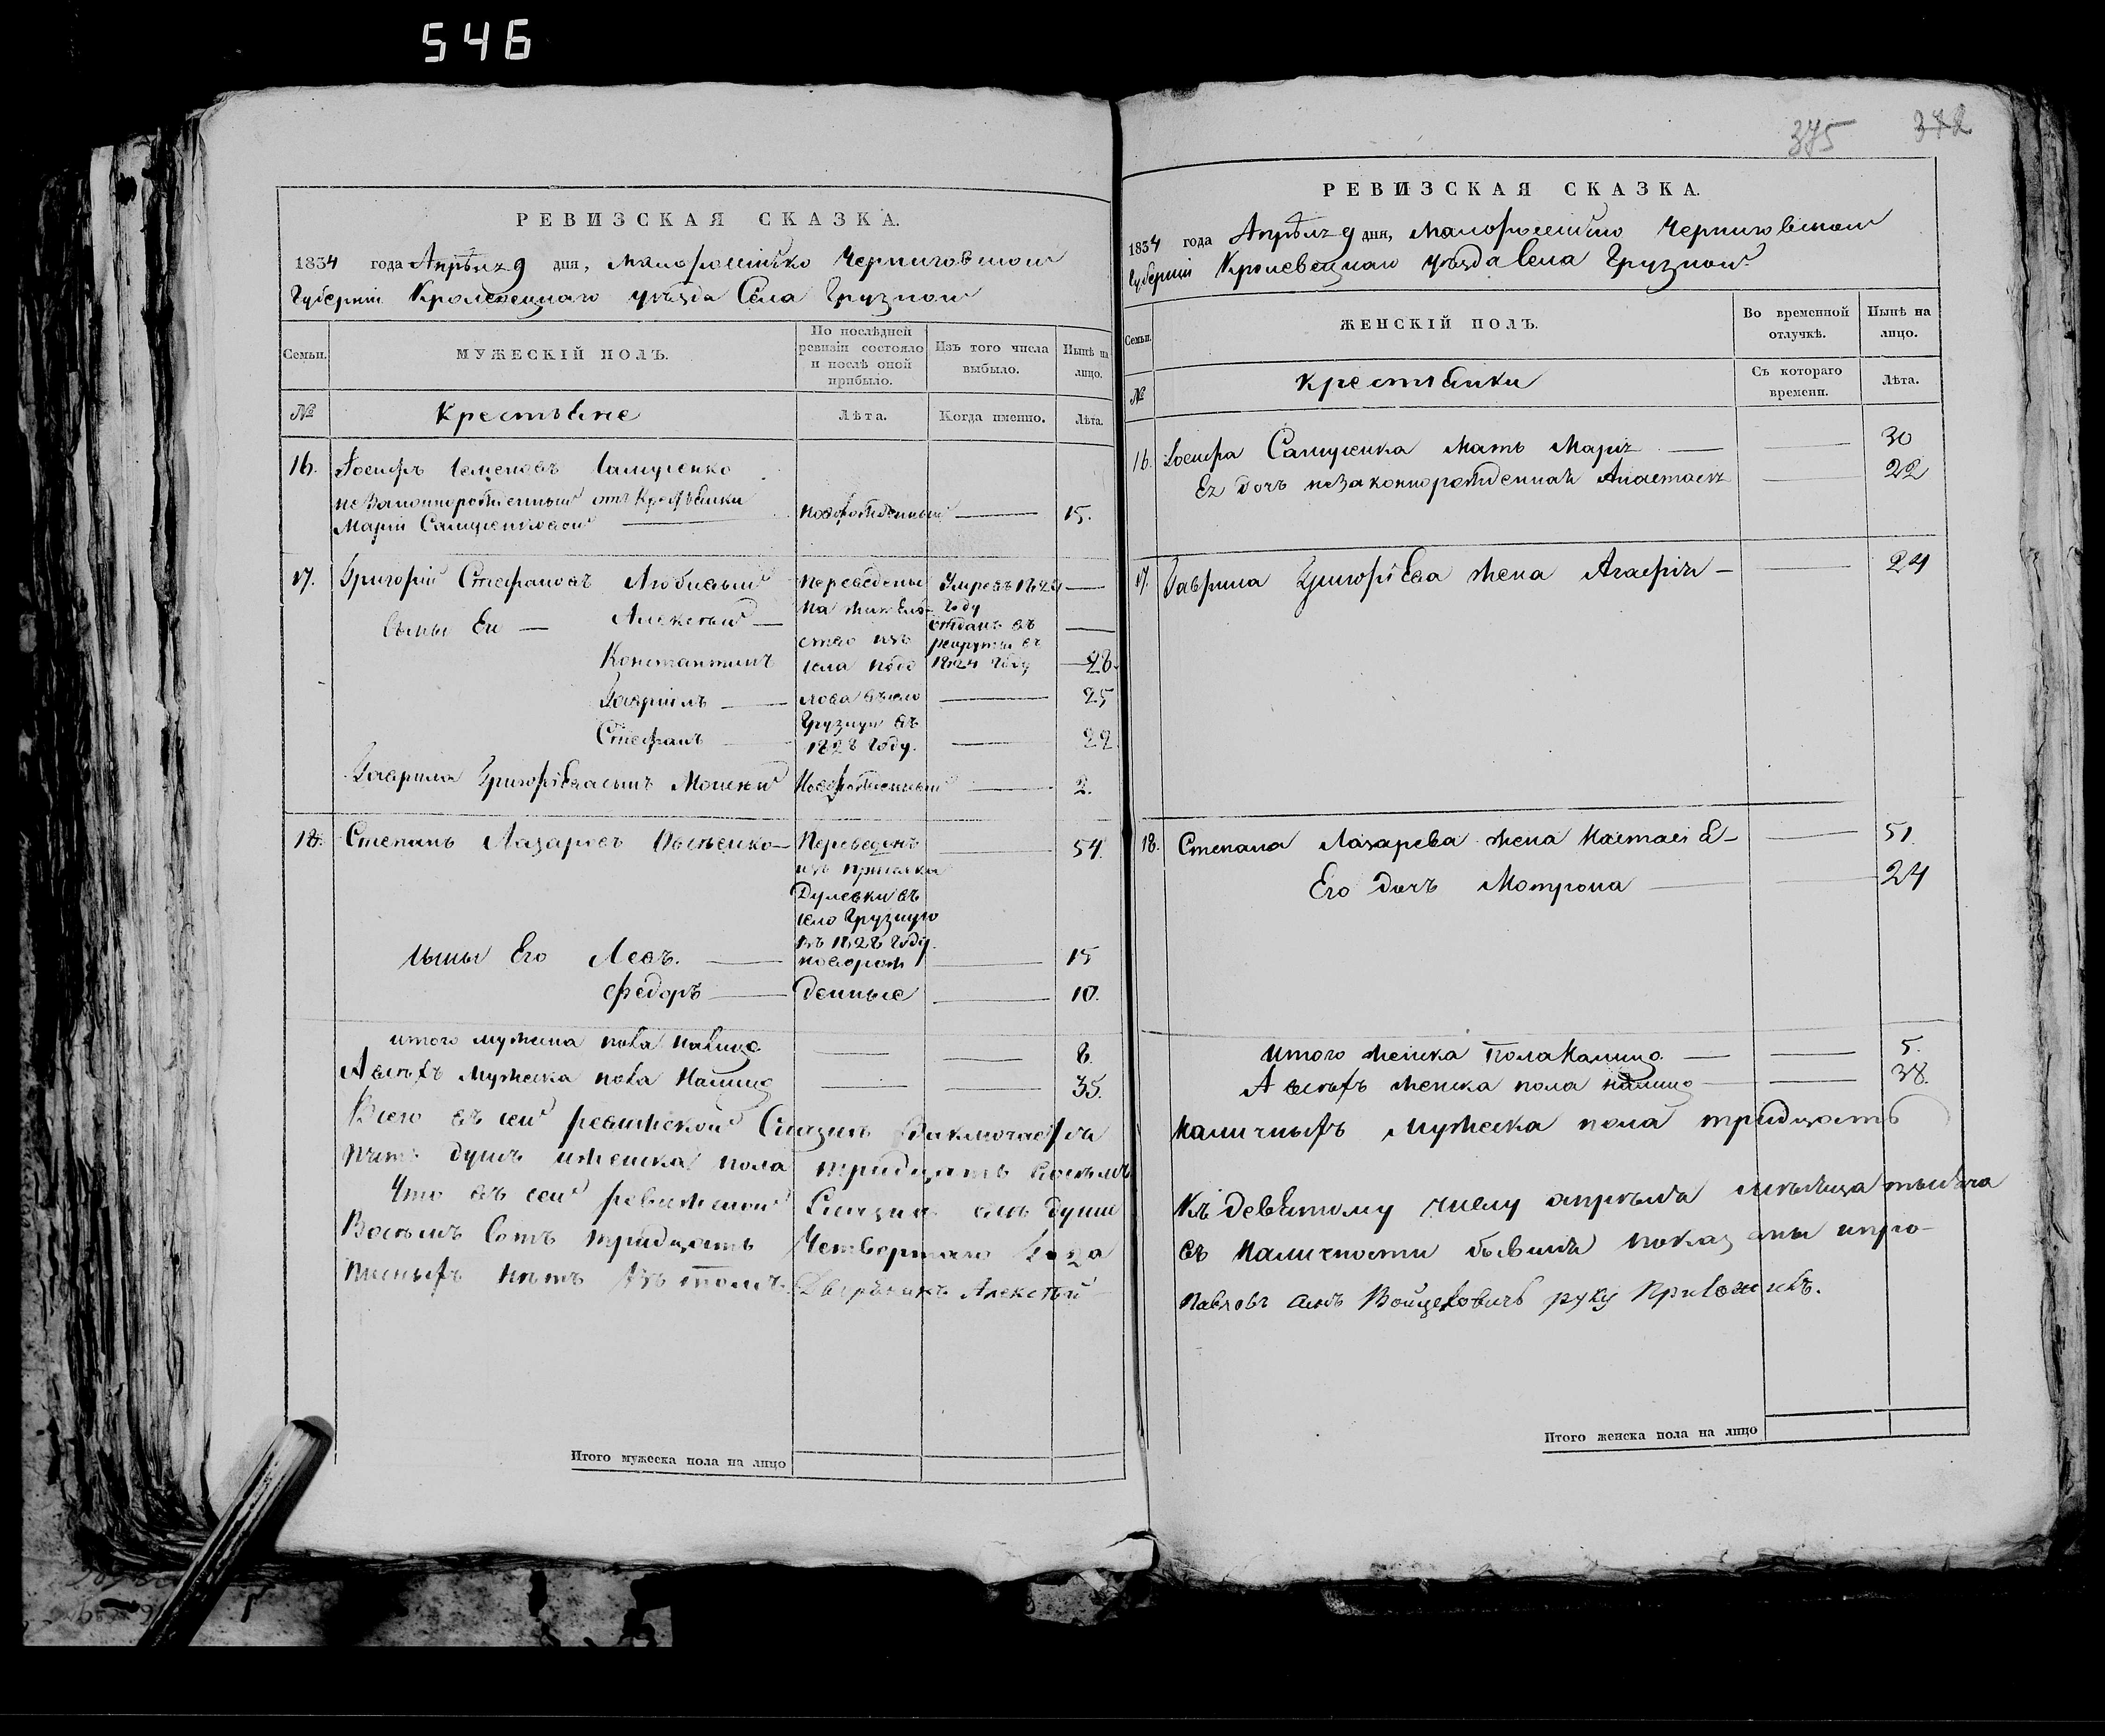 546
РЕВИЗСКАЯ СКАЗКА.
1834 года Апрѣля 9 дня, Малороссійско Черниговской
Губерніи Кролевецкаго уѣзда Села Грузкой
Семьи.
МУЖЕСКІЙ ПОЛЪ.
По послѣдней ревизіи состояло и послѣ оной прибыло.
Изъ того числа выбыло.
Нынѣ на лицо.
№
Крестьяне
Лѣта.
Когда именно.
Лѣта.
16. Іосифъ Семеновъ
незаконнорожденный отъ Крестьянки
Маріи новорожденный 15.
17. Григорій Стефановъ переведены Умре въ 1824
Сыны Ег Алексѣй на жительство году отданъ въ рекруты въ
Константинъ села 1824 году 28.
Гавріилъ въ село 25
Стефанъ Грузкую въ 1828 году. 22
Гаврила Григорьева сынъ Новорожденный 2.
18. Степанъ Лазаревъ Переведенъ 54.
изъ
въ
село Грузкую
въ 1828 году.
сыны Его Левъ. новорож 15
Федоръ денные 10.
итого мужеска пола налицо 8.
А всѣхъ мужеска пола налицо 35.
Всего въ сей ревижской Сказки Заключается
пять душъ иженска пола тридцать восемь
Что въ сей ревижской Сказки всѣ души
Восемь Сотъ тридцать Четвертаго Года
писныхъ нѣтъ въ томъ Дворянинъ Алексѣй
Итого мужеска пола на лицо
375 372
РЕВИЗСКАЯ СКАЗКА.
1834 года Апрѣля 9 дня, Малороссійско Черниговской
Губерніи Кролевецкаго уѣзда Села Грузкой
Семьи.
ЖЕНСКІЙ ПОЛЪ.
Во временной отлучкѣ.
Нынѣ на лицо.
№
Крестьянки
Съ котораго времени.
Лѣта.
16. Іосифа мать Марія 30
Ея дочь незаконнорожденная Анастасія 22
17. Гаврила Григорьева жена Агафія 24
18. Степана Лазарева жена Настасія 51.
Его дочь Мотрона 24
Итого женска пола налицо 5.
А всѣхъ женска пола налицо 38.
Наличныхъ мужеска пола тридцать
Къ девятому числу апрѣля мѣсяца тысяча
въ наличности бывшія показаны и про-
Павловъ сынъ Войцеховичъ руку приложилъ.
Итого женска пола на лицо